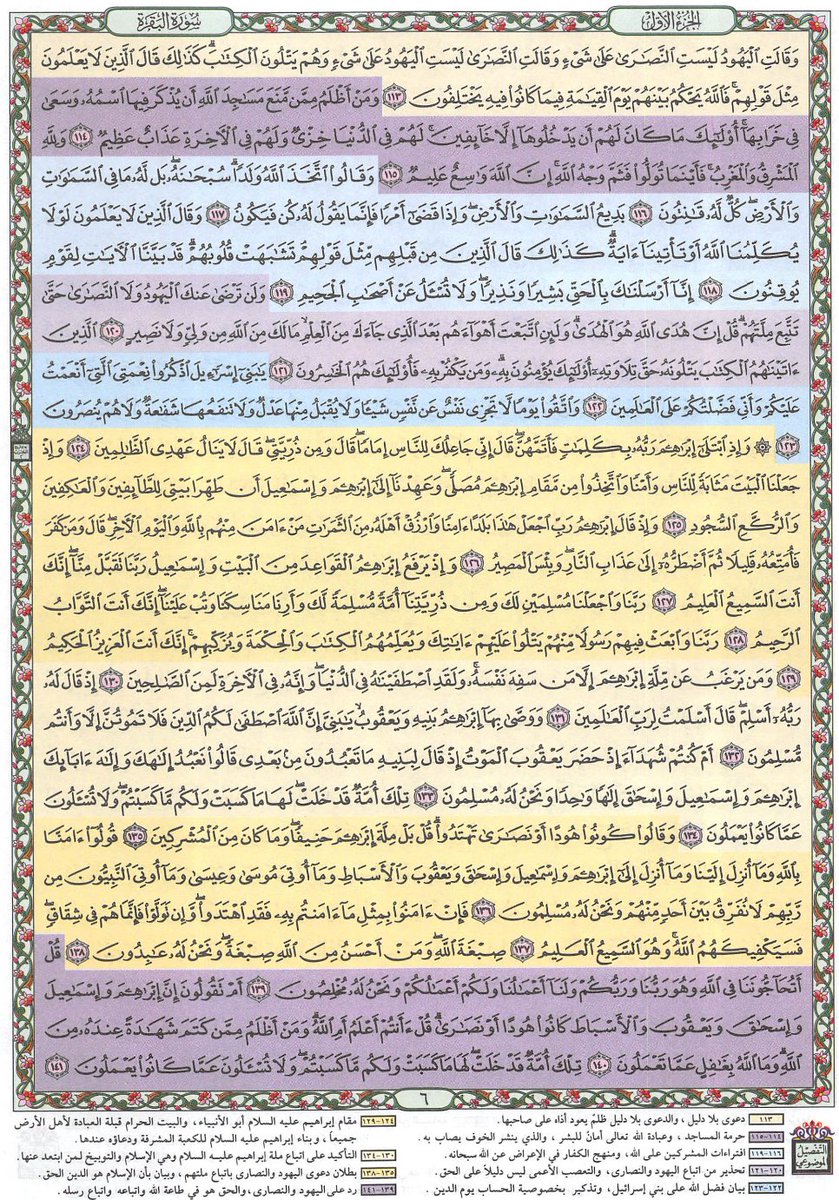 الجزء الأول
سورة البقرة
وَقَالَتِ الْيَهُودُ لَيْسَتِ النَّصَارَىٰ عَلَىٰ شَيْءٍ وَقَالَتِ النَّصَارَىٰ لَيْسَتِ الْيَهُودُ عَلَىٰ شَيْءٍ وَهُمْ يَتْلُونَ الْكِتَابَ ۗ كَذَٰلِكَ قَالَ الَّذِينَ لَا يَعْلَمُونَ
مِثْلَ قَوْلِهِمْ ۚ فَاللَّهُ يَحْكُمُ بَيْنَهُمْ يَوْمَ الْقِيَامَةِ فِيمَا كَانُوا فِيهِ يَخْتَلِفُونَ ١١٣ وَمَنْ أَظْلَمُ مِمَّن مَّنَعَ مَسَاجِدَ اللَّهِ أَن يُذْكَرَ فِيهَا اسْمُهُ وَسَعَىٰ
فِي خَرَابِهَا ۚ أُولَٰئِكَ مَا كَانَ لَهُمْ أَن يَدْخُلُوهَا إِلَّا خَائِفِينَ ۚ لَهُمْ فِي الدُّنْيَا خِزْيٌ وَلَهُمْ فِي الْآخِرَةِ عَذَابٌ عَظِيمٌ ١١٤ وَلِلَّهِ
الْمَشْرِقُ وَالْمَغْرِبُ ۚ فَأَيْنَمَا تُوَلُّوا فَثَمَّ وَجْهُ اللَّهِ ۚ إِنَّ اللَّهَ وَاسِعٌ عَلِيمٌ ١١٥ وَقَالُوا اتَّخَذَ اللَّهُ وَلَدًا ۗ سُبْحَانَهُ ۖ بَل لَّهُ مَا فِي السَّمَاوَاتِ
وَالْأَرْضِ ۖ كُلٌّ لَّهُ قَانِتُونَ ١١٦ بَدِيعُ السَّمَاوَاتِ وَالْأَرْضِ ۖ وَإِذَا قَضَىٰ أَمْرًا فَإِنَّمَا يَقُولُ لَهُ كُن فَيَكُونُ ١١٧ وَقَالَ الَّذِينَ لَا يَعْلَمُونَ لَوْلَا
يُكَلِّمُنَا اللَّهُ أَوْ تَأْتِينَا آيَةٌ ۗ كَذَٰلِكَ قَالَ الَّذِينَ مِن قَبْلِهِم مِّثْلَ قَوْلِهِمْ ۘ تَشَابَهَتْ قُلُوبُهُمْ ۗ قَدْ بَيَّنَّا الْآيَاتِ لِقَوْمٍ
يُوقِنُونَ ١١٨ إِنَّا أَرْسَلْنَاكَ بِالْحَقِّ بَشِيرًا وَنَذِيرًا ۖ وَلَا تُسْأَلُ عَنْ أَصْحَابِ الْجَحِيمِ ١١٩ وَلَن تَرْضَىٰ عَنكَ الْيَهُودُ وَلَا النَّصَارَىٰ حَتَّىٰ
تَتَّبِعَ مِلَّتَهُمْ ۗ قُلْ إِنَّ هُدَى اللَّهِ هُوَ الْهُدَىٰ ۗ وَلَئِنِ اتَّبَعْتَ أَهْوَاءَهُم بَعْدَ الَّذِي جَاءَكَ مِنَ الْعِلْمِ ۙ مَا لَكَ مِنَ اللَّهِ مِن وَلِيٍّ وَلَا نَصِيرٍ ١٢٠ الَّذِينَ
آتَيْنَاهُمُ الْكِتَابَ يَتْلُونَهُ حَقَّ تِلَاوَتِهِ أُولَٰئِكَ يُؤْمِنُونَ بِهِ ۗ وَمَن يَكْفُرْ بِهِ فَأُولَٰئِكَ هُمُ الْخَاسِرُونَ ١٢١ يَا بَنِي إِسْرَائِيلَ اذْكُرُوا نِعْمَتِيَ الَّتِي أَنْعَمْتُ
عَلَيْكُمْ وَأَنِّي فَضَّلْتُكُمْ عَلَى الْعَالَمِينَ ١٢٢ وَاتَّقُوا يَوْمًا لَّا تَجْزِي نَفْسٌ عَن نَّفْسٍ شَيْئًا وَلَا يُقْبَلُ مِنْهَا عَدْلٌ وَلَا تَنفَعُهَا شَفَاعَةٌ وَلَا هُمْ يُنصَرُونَ
١٢٣ ۞ وَإِذِ ابْتَلَىٰ إِبْرَاهِيمَ رَبُّهُ بِكَلِمَاتٍ فَأَتَمَّهُنَّ ۖ قَالَ إِنِّي جَاعِلُكَ لِلنَّاسِ إِمَامًا ۖ قَالَ وَمِن ذُرِّيَّتِي ۖ قَالَ لَا يَنَالُ عَهْدِي الظَّالِمِينَ ١٢٤ وَإِذْ
جَعَلْنَا الْبَيْتَ مَثَابَةً لِّلنَّاسِ وَأَمْنًا وَاتَّخِذُوا مِن مَّقَامِ إِبْرَاهِيمَ مُصَلًّى ۖ وَعَهِدْنَا إِلَىٰ إِبْرَاهِيمَ وَإِسْمَاعِيلَ أَن طَهِّرَا بَيْتِيَ لِلطَّائِفِينَ وَالْعَاكِفِينَ
وَالرُّكَّعِ السُّجُودِ ١٢٥ وَإِذْ قَالَ إِبْرَاهِيمُ رَبِّ اجْعَلْ هَٰذَا بَلَدًا آمِنًا وَارْزُقْ أَهْلَهُ مِنَ الثَّمَرَاتِ مَنْ آمَنَ مِنْهُم بِاللَّهِ وَالْيَوْمِ الْآخِرِ ۖ قَالَ وَمَن كَفَرَ
فَأُمَتِّعُهُ قَلِيلًا ثُمَّ أَضْطَرُّهُ إِلَىٰ عَذَابِ النَّارِ ۖ وَبِئْسَ الْمَصِيرُ ١٢٦ وَإِذْ يَرْفَعُ إِبْرَاهِيمُ الْقَوَاعِدَ مِنَ الْبَيْتِ وَإِسْمَاعِيلُ رَبَّنَا تَقَبَّلْ مِنَّا ۖ إِنَّكَ
أَنتَ السَّمِيعُ الْعَلِيمُ ١٢٧ رَبَّنَا وَاجْعَلْنَا مُسْلِمَيْنِ لَكَ وَمِن ذُرِّيَّتِنَا أُمَّةً مُّسْلِمَةً لَّكَ وَأَرِنَا مَنَاسِكَنَا وَتُبْ عَلَيْنَا ۖ إِنَّكَ أَنتَ التَّوَّابُ
الرَّحِيمُ ١٢٨ رَبَّنَا وَابْعَثْ فِيهِمْ رَسُولًا مِّنْهُمْ يَتْلُو عَلَيْهِمْ آيَاتِكَ وَيُعَلِّمُهُمُ الْكِتَابَ وَالْحِكْمَةَ وَيُزَكِّيهِمْ ۚ إِنَّكَ أَنتَ الْعَزِيزُ الْحَكِيمُ
١٢٩ وَمَن يَرْغَبُ عَن مِّلَّةِ إِبْرَاهِيمَ إِلَّا مَن سَفِهَ نَفْسَهُ ۚ وَلَقَدِ اصْطَفَيْنَاهُ فِي الدُّنْيَا ۖ وَإِنَّهُ فِي الْآخِرَةِ لَمِنَ الصَّالِحِينَ ١٣٠ إِذْ قَالَ لَهُ
رَبُّهُ أَسْلِمْ ۖ قَالَ أَسْلَمْتُ لِرَبِّ الْعَالَمِينَ ١٣١ وَوَصَّىٰ بِهَا إِبْرَاهِيمُ بَنِيهِ وَيَعْقُوبُ يَا بَنِيَّ إِنَّ اللَّهَ اصْطَفَىٰ لَكُمُ الدِّينَ فَلَا تَمُوتُنَّ إِلَّا وَأَنتُم
مُّسْلِمُونَ ١٣٢ أَمْ كُنتُمْ شُهَدَاءَ إِذْ حَضَرَ يَعْقُوبَ الْمَوْتُ إِذْ قَالَ لِبَنِيهِ مَا تَعْبُدُونَ مِن بَعْدِي قَالُوا نَعْبُدُ إِلَٰهَكَ وَإِلَٰهَ آبَائِكَ
إِبْرَاهِيمَ وَإِسْمَاعِيلَ وَإِسْحَاقَ إِلَٰهًا وَاحِدًا وَنَحْنُ لَهُ مُسْلِمُونَ ١٣٣ تِلْكَ أُمَّةٌ قَدْ خَلَتْ ۖ لَهَا مَا كَسَبَتْ وَلَكُم مَّا كَسَبْتُمْ ۖ وَلَا تُسْأَلُونَ
عَمَّا كَانُوا يَعْمَلُونَ ١٣٤ وَقَالُوا كُونُوا هُودًا أَوْ نَصَارَىٰ تَهْتَدُوا ۗ قُلْ بَلْ مِلَّةَ إِبْرَاهِيمَ حَنِيفًا ۖ وَمَا كَانَ مِنَ الْمُشْرِكِينَ ١٣٥ قُولُوا آمَنَّا
بِاللَّهِ وَمَا أُنزِلَ إِلَيْنَا وَمَا أُنزِلَ إِلَىٰ إِبْرَاهِيمَ وَإِسْمَاعِيلَ وَإِسْحَاقَ وَيَعْقُوبَ وَالْأَسْبَاطِ وَمَا أُوتِيَ مُوسَىٰ وَعِيسَىٰ وَمَا أُوتِيَ النَّبِيُّونَ مِن
رَّبِّهِمْ لَا نُفَرِّقُ بَيْنَ أَحَدٍ مِّنْهُمْ وَنَحْنُ لَهُ مُسْلِمُونَ ١٣٦ فَإِنْ آمَنُوا بِمِثْلِ مَا آمَنتُم بِهِ فَقَدِ اهْتَدَوا ۖ وَّإِن تَوَلَّوْا فَإِنَّمَا هُمْ فِي شِقَاقٍ ۖ
فَسَيَكْفِيكَهُمُ اللَّهُ ۚ وَهُوَ السَّمِيعُ الْعَلِيمُ ١٣٧ صِبْغَةَ اللَّهِ ۖ وَمَنْ أَحْسَنُ مِنَ اللَّهِ صِبْغَةً ۖ وَنَحْنُ لَهُ عَابِدُونَ ١٣٨ قُلْ
أَتُحَاجُّونَنَا فِي اللَّهِ وَهُوَ رَبُّنَا وَرَبُّكُمْ وَلَنَا أَعْمَالُنَا وَلَكُمْ أَعْمَالُكُمْ وَنَحْنُ لَهُ مُخْلِصُونَ ١٣٩ أَمْ تَقُولُونَ إِنَّ إِبْرَاهِيمَ وَإِسْمَاعِيلَ
وَإِسْحَاقَ وَيَعْقُوبَ وَالْأَسْبَاطَ كَانُوا هُودًا أَوْ نَصَارَىٰ ۗ قُلْ أَأَنتُمْ أَعْلَمُ أَمِ اللَّهُ ۗ وَمَنْ أَظْلَمُ مِمَّن كَتَمَ شَهَادَةً عِندَهُ مِنَ
اللَّهِ ۗ وَمَا اللَّهُ بِغَافِلٍ عَمَّا تَعْمَلُونَ ١٤٠ تِلْكَ أُمَّةٌ قَدْ خَلَتْ ۖ لَهَا مَا كَسَبَتْ وَلَكُم مَّا كَسَبْتُمْ ۖ وَلَا تُسْأَلُونَ عَمَّا كَانُوا يَعْمَلُونَ ١٤١
٦
التفصيل الموضوعي
١١٣ دعوى بلا دليل ، والدعوى بلا دليل ظلمٌ يعود أذاه على صاحبها .
١١٤-١١٥ حرمة المساجد ، وعبادة الله تعالى أمانٌ للبشر ، والذي ينشر الخوف يصاب به .
١١٦-١١٩ افتراءات المشركين على الله، ومنهج الكفار في الإعراض عن الله سبحانه .
١٢٠-١٢١ تحذير من اتباع اليهود والنصارى، والتعصب الأعمى ليس دليلاً على الحق .
١٢٢-١٢٣ بيان فضل الله على بني إسرائيل، وتذكير بخصوصية الحساب يوم الدين .
١٢٤-١٢٩ مقام إبراهيم عليه السلام أبو الأنبياء، والبيت الحرام قبلة العبادة لأهل الأرض
جميعاً ، وبناء إبراهيم عليه السلام للكعبة المشرفة ودعاؤه عندها .
١٣٠-١٣٤ التأكيد على اتباع ملة إبراهيم عليه السلام وهي الإسلام والتوبيخ لمن ابتعد عنها.
١٣٥-١٣٨ بطلان دعوى اليهود والنصارى باتباع ملتهم ، وبيان بأن الإسلام هو الدين الحق.
١٣٩-١٤١ رد على اليهود والنصارى، والحق هو في طاعة الله واتباعه واتباع رسله .